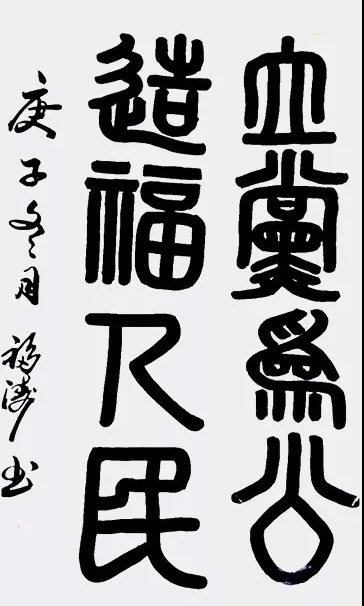 立黨爲公
造福人民
庚子冬月福涛书